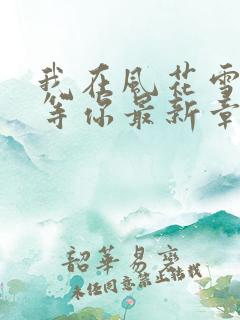 我在风花雪
等你最新章
韶华易变
未经同意禁止转载